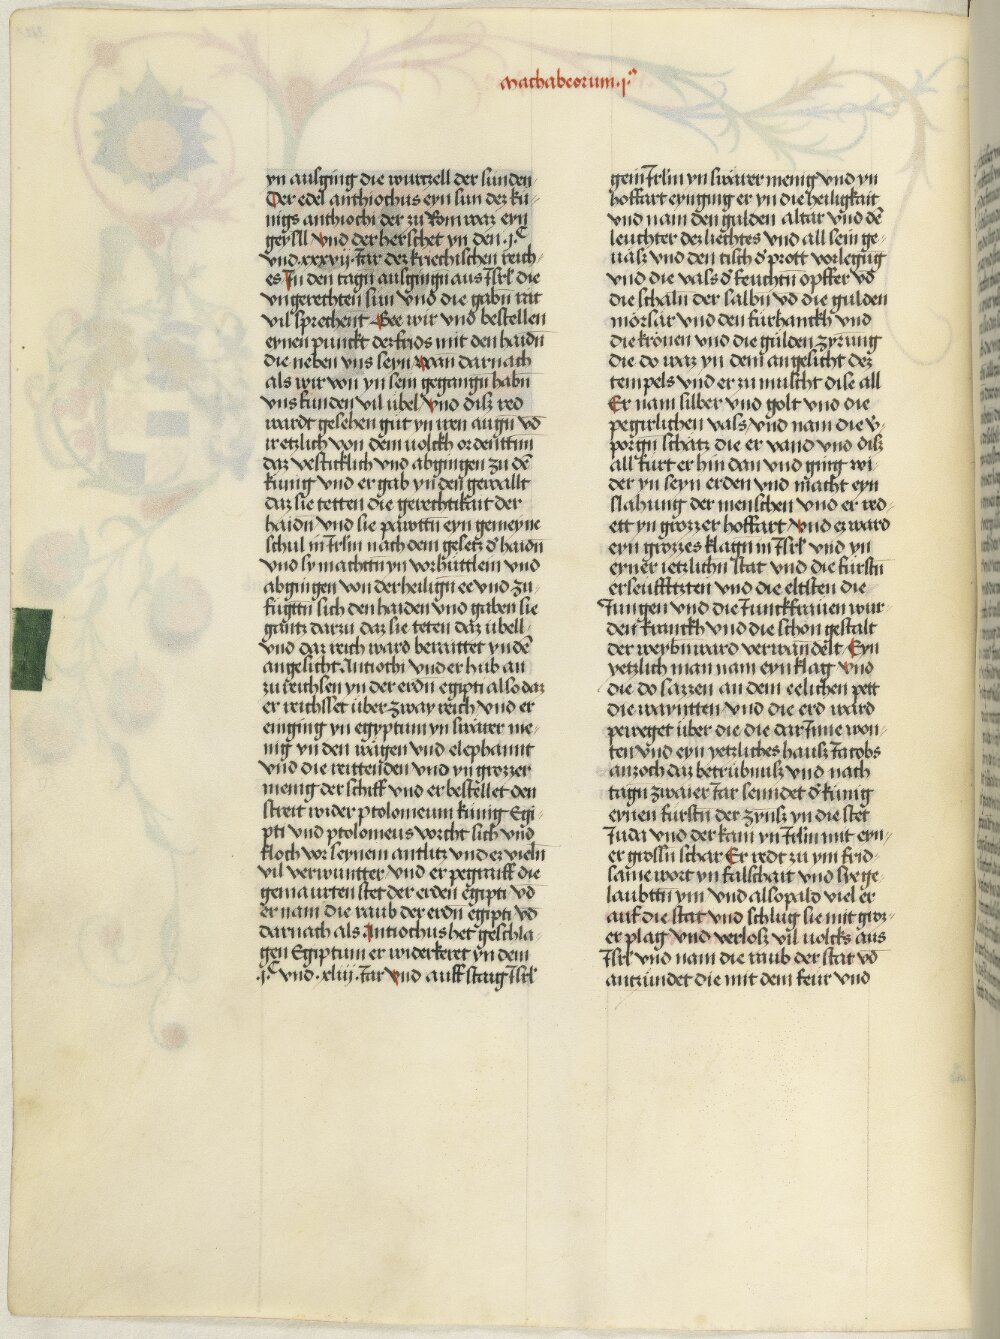 Machabeorum .j.
yn ausging die wurtzell der sunden
Der edel anthiochus eyn sun der kü-
nigs anthiochi der zu Rom waz eyn
geysll vnd der herschet yn den .j.C
vnd .xxxvij. Jar der kriechischen reich-
es Jn den tagn ausgingn aus Jsrl die
vngerechten sün vnd die gabn rat
vil sprechent Gee wir vnd bestellen
eynen punckt der frids mit den haidn
die neben vns seyn wan darnach
als wir von yn sein gegangn habn
vns funden vil übel vnd disz red
wardt gesehen gut yn iren augn vd
ir etzlich von dem volckh ordenttnn
daz vesticklich vnd abgingen zu dē
kunig vnd er gab yn den gewallt
daz sie tetten die gerechtikait der
haidn vnd sie pawttn eyn gemeyne
schul in Jrlm nach dem gesetz d haidn
vnd sy machttn yn vorhüttlein vnd
abgingen von der heilign ee vnd zu-
fugttn sich den haiden vnd gaben sie
gantz darzu daz sie teten daz übell
vnd daz reich ward beraittet yn dē
angesicht Antiochi vnd er hub an
zu reichsen yn der erdn egipti also daz
er reichsset über zway reich vnd er
einging yn egyptum yn swarer me-
nig yn den wägen vnd elephannt
vnd die reittenden vnd yn grozzer
menig der schiff vnd er bestellet den
streit wider ptolomeum kunig Egi-
pti vnd ptolomeus vorcht sich vnd
floch vor seynem antlitz vnd ez vieln
vil verwuntter vnd er pegraiff die
gemaurten stet der erden egipti vd
er nam die raub der erdn egipti vd
darnach als Antiochus het geschla-
gen Egiptum er widerkeret yn dem
.j.C vnd .xliij. Jar vnd auff staig Jsrl
gein Jrlm yn swarer menig vnd yn
hoffart eynging er yn die heiligkait
vnd nam den gulden altar vnd dē
leuchter dez liechtes vnd all sein ge-
uasz vnd den tisch d prott vorlegug
vnd die vas d feuchtn opffer vd
die schaln der salbn vd die gulden
mörsar vnd den fürhanckh vnd
die kronen vnd die gulden zyrung
die do waz yn dem angesicht dez
tempels vnd er zu muscht dise all
Er nam silber vnd golt vnd die
pegirlichen vasz vnd nam die v-
porgn schätz die er vand vnd disz
all fürt er hin dan vnd ging wi-
der yn seyn erden vnd macht eyn
slahung der menschen vnd er red-
ett yn grozzer hoffart vnd ez ward
eyn grozzes klagn in Jsrl vnd yn
eyner ietzlichn stat vnd die fürstn
erseufftzten vnd die eltsten die
Jungen vnd die Junckfrauen wur-
den kranckh vnd die schon gestalt
der weybn ward verwandelt Eyn
yetzlich man nam eyn klag vnd
die do sazzen an dem eelichen pett
die wayntten vnd die erd ward
peweget über die die dar Jnne won-
ten vnd eyn yetzliches hausz Jacobs
anzoch daz betrübnusz vnd nach
tagn zwaier Jar sendet d kunig
eynen fürstn der zynsz yn die stet
Juda vnd der kam yn Jrlm mit eyn-
er grossn schar Er redt zu ym frid-
same wort yn falschait vnd sye ge-
laubttn ym vnd also pald viel er
auf die stat vnd schlug sie mit groz-
er plag vnd verlosz vil volcks aus
Jsrl vnd nam die raub der stat vd
antzundet die mit dem feur vnd